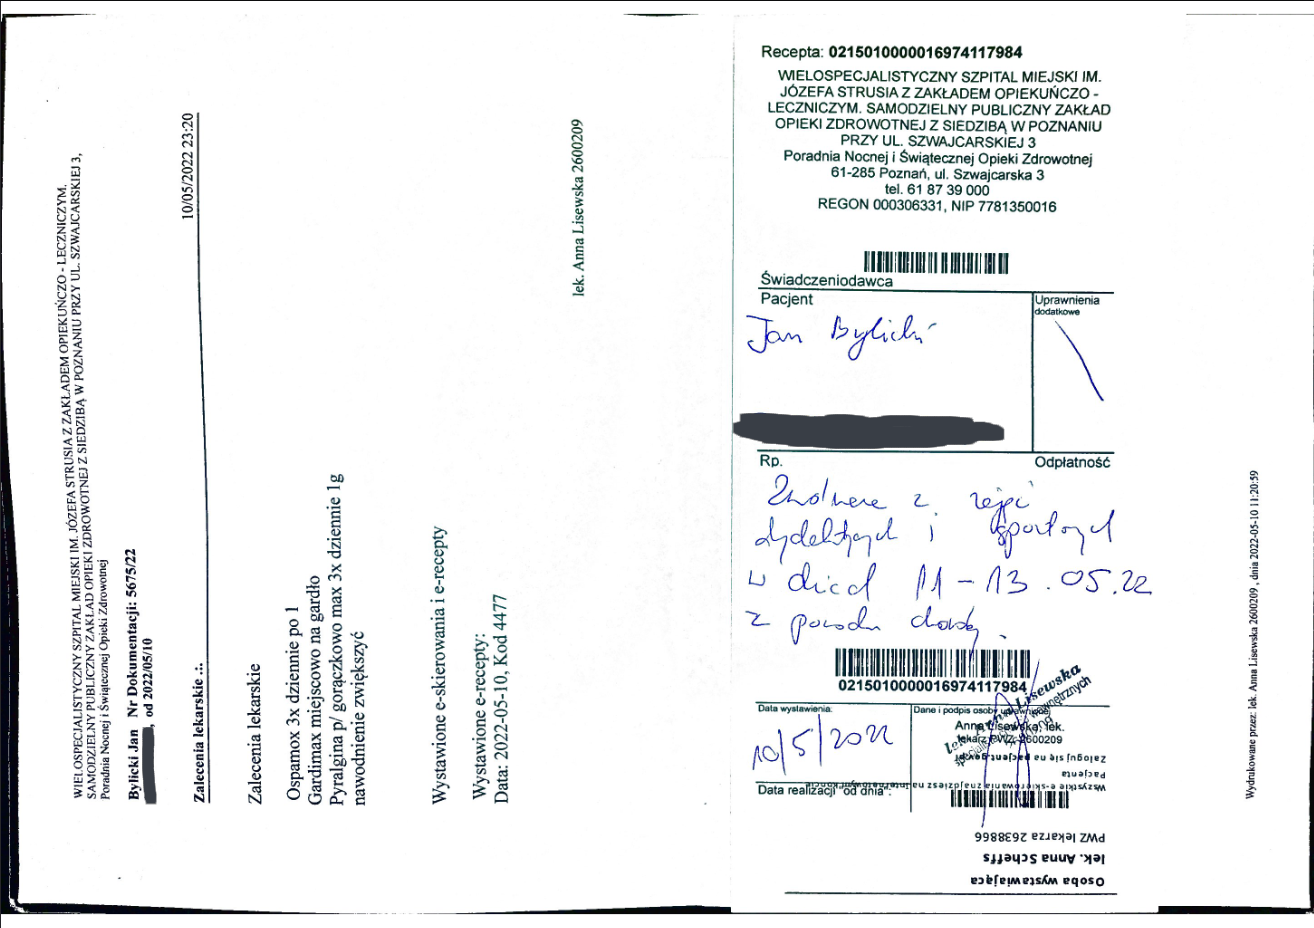 WIELOSPECJALISTYCZNY SZPITAL MIEJSKI IM. JÓZEFA STRUSIA Z ZAKŁADEM OPIEKUŃCZO - LECZNICZYM.
SAMODZIELNY PUBLICZNY ZAKŁAD OPIEKI ZDROWOTNEJ Z SIEDZIBĄ W POZNANIU PRZY UL. SZWAJCARSKIEJ 3,
Poradnia Nocnej i Świątecznej Opieki Zdrowotnej
Bylicki Jan Nr Dokumentacji: 5675/22
, od 2022/05/10
Zalecenia lekarskie .:. 10/05/2022 23:20
Zalecenia lekarskie
Ospamox 3x dziennie po 1
Gardimax miejscowo na gardło
Pyralgina p/ gorączkowo max 3x dziennie 1g
nawodnienie zwiększyć
Wystawione e-skierowania i e-recepty
Wystawione e-recepty:
Data: 2022-05-10, Kod 4477
lek. Anna Lisewska 2600209
Recepta: 0215010000016974117984
WIELOSPECJALISTYCZNY SZPITAL MIEJSKI IM.
JÓZEFA STRUSIA Z ZAKŁADEM OPIEKUŃCZO -
LECZNICZYM. SAMODZIELNY PUBLICZNY ZAKŁAD
OPIEKI ZDROWOTNEJ Z SIEDZIBĄ W POZNANIU
PRZY UL. SZWAJCARSKIEJ 3
Poradnia Nocnej i Świątecznej Opieki Zdrowotnej
61-285 Poznań, ul. Szwajcarska 3
tel. 61 87 39 000
REGON 000306331, NIP 7781350016
Świadczeniodawca
Pacjent
Uprawnienia
dodatkowe
Jan Bylicki
Rp. Odpłatność
Zwolnienie z zajęć
dydaktycznych i sportowych
w dniach 11-13.05.22
z powodu choroby.
0215010000016974117984
Data wystawienia:
Dane i podpis osoby uprawnionej
10/5/2022
lek. Anna Lisewska
Anna Lisewska, lek.
lekarz PWZ: 2600209
Zaloguj się na pacjent.gov.pl
Pacjenta
Wszystkie e-skierowania znajdziesz na Internetowym Koncie
Data realizacji "od dnia":
PWZ lekarza 2638866
lek. Anna Scheffs
Osoba wystawiająca
Wydrukowane przez: lek. Anna Lisewska 2600209 , dnia 2022-05-10 11:20:59